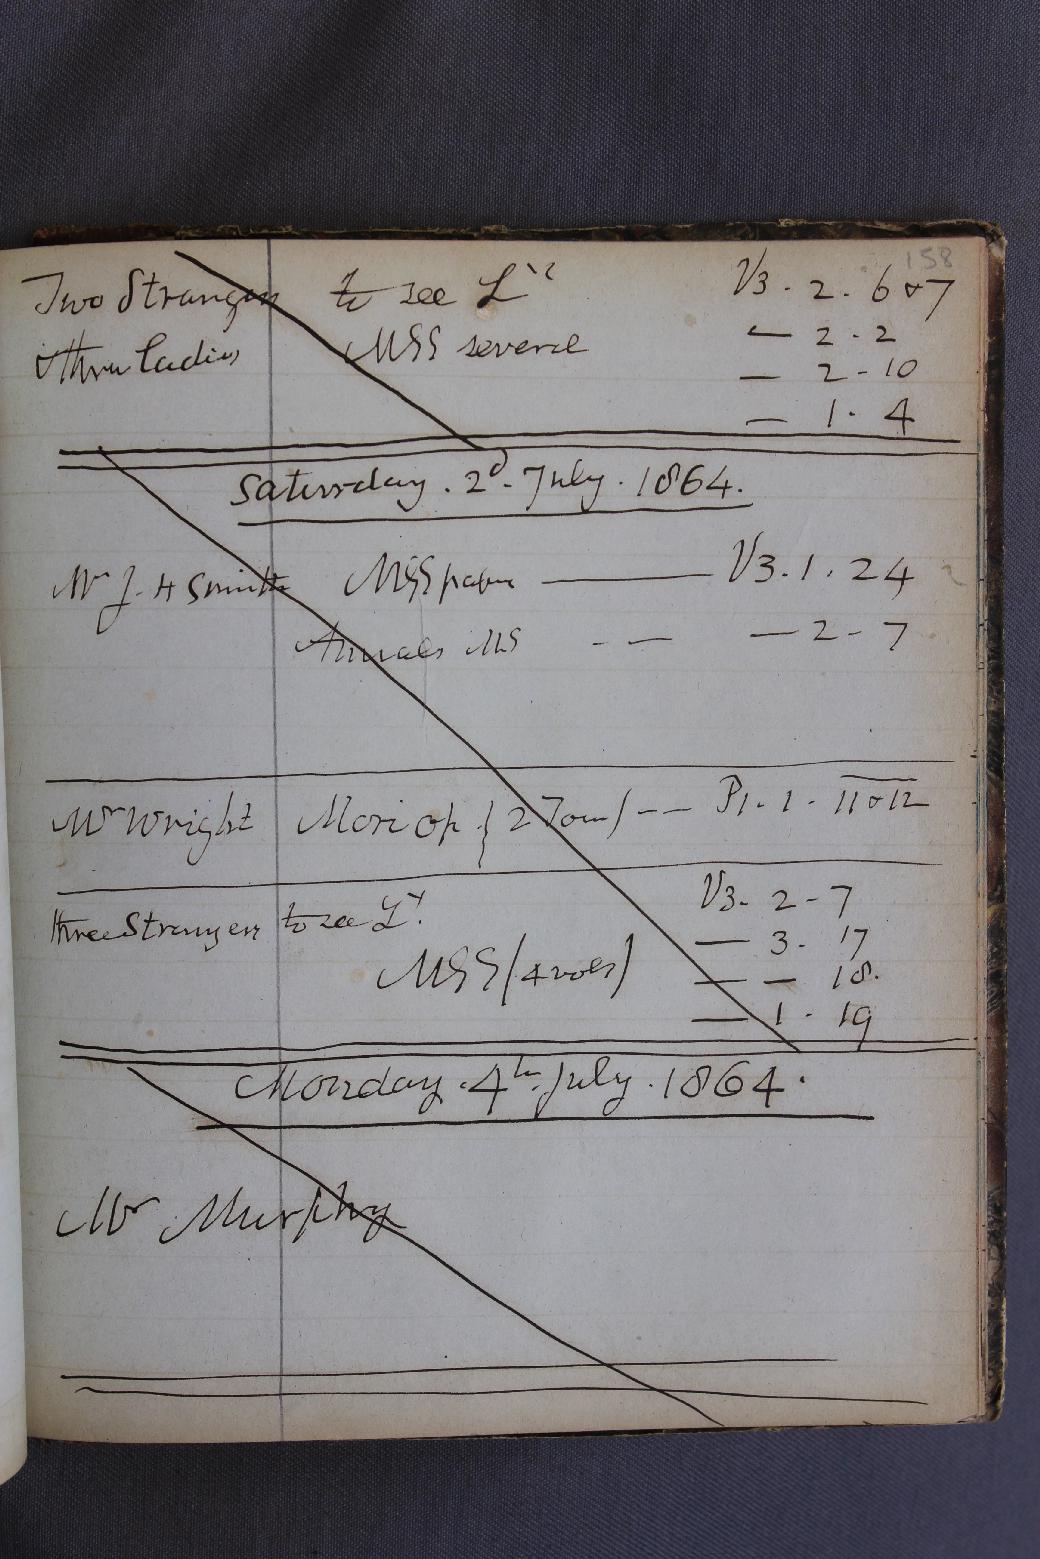 158
Two Strangers to see L^y V3 . 2 . 6 & 7
& three Ladies MSS several — 2 . 2
— 2 - 10
— 1 . 4
Saturday . 2^d . July . 1864.
Mr J. H Smith MSS papers — V3 . 1 . 24
Annals MS - — — 2 - 7
Mr Wright Mori Op { 2 Tom) — — P1 . 1 . 11 & 12
three Strangers to see L^y. V3 . 2 - 7
— 3 . 17
MSS (4 vols) — — 18.
— 1 . 19
Monday . 4^th . July . 1864 .
Mr Murphy